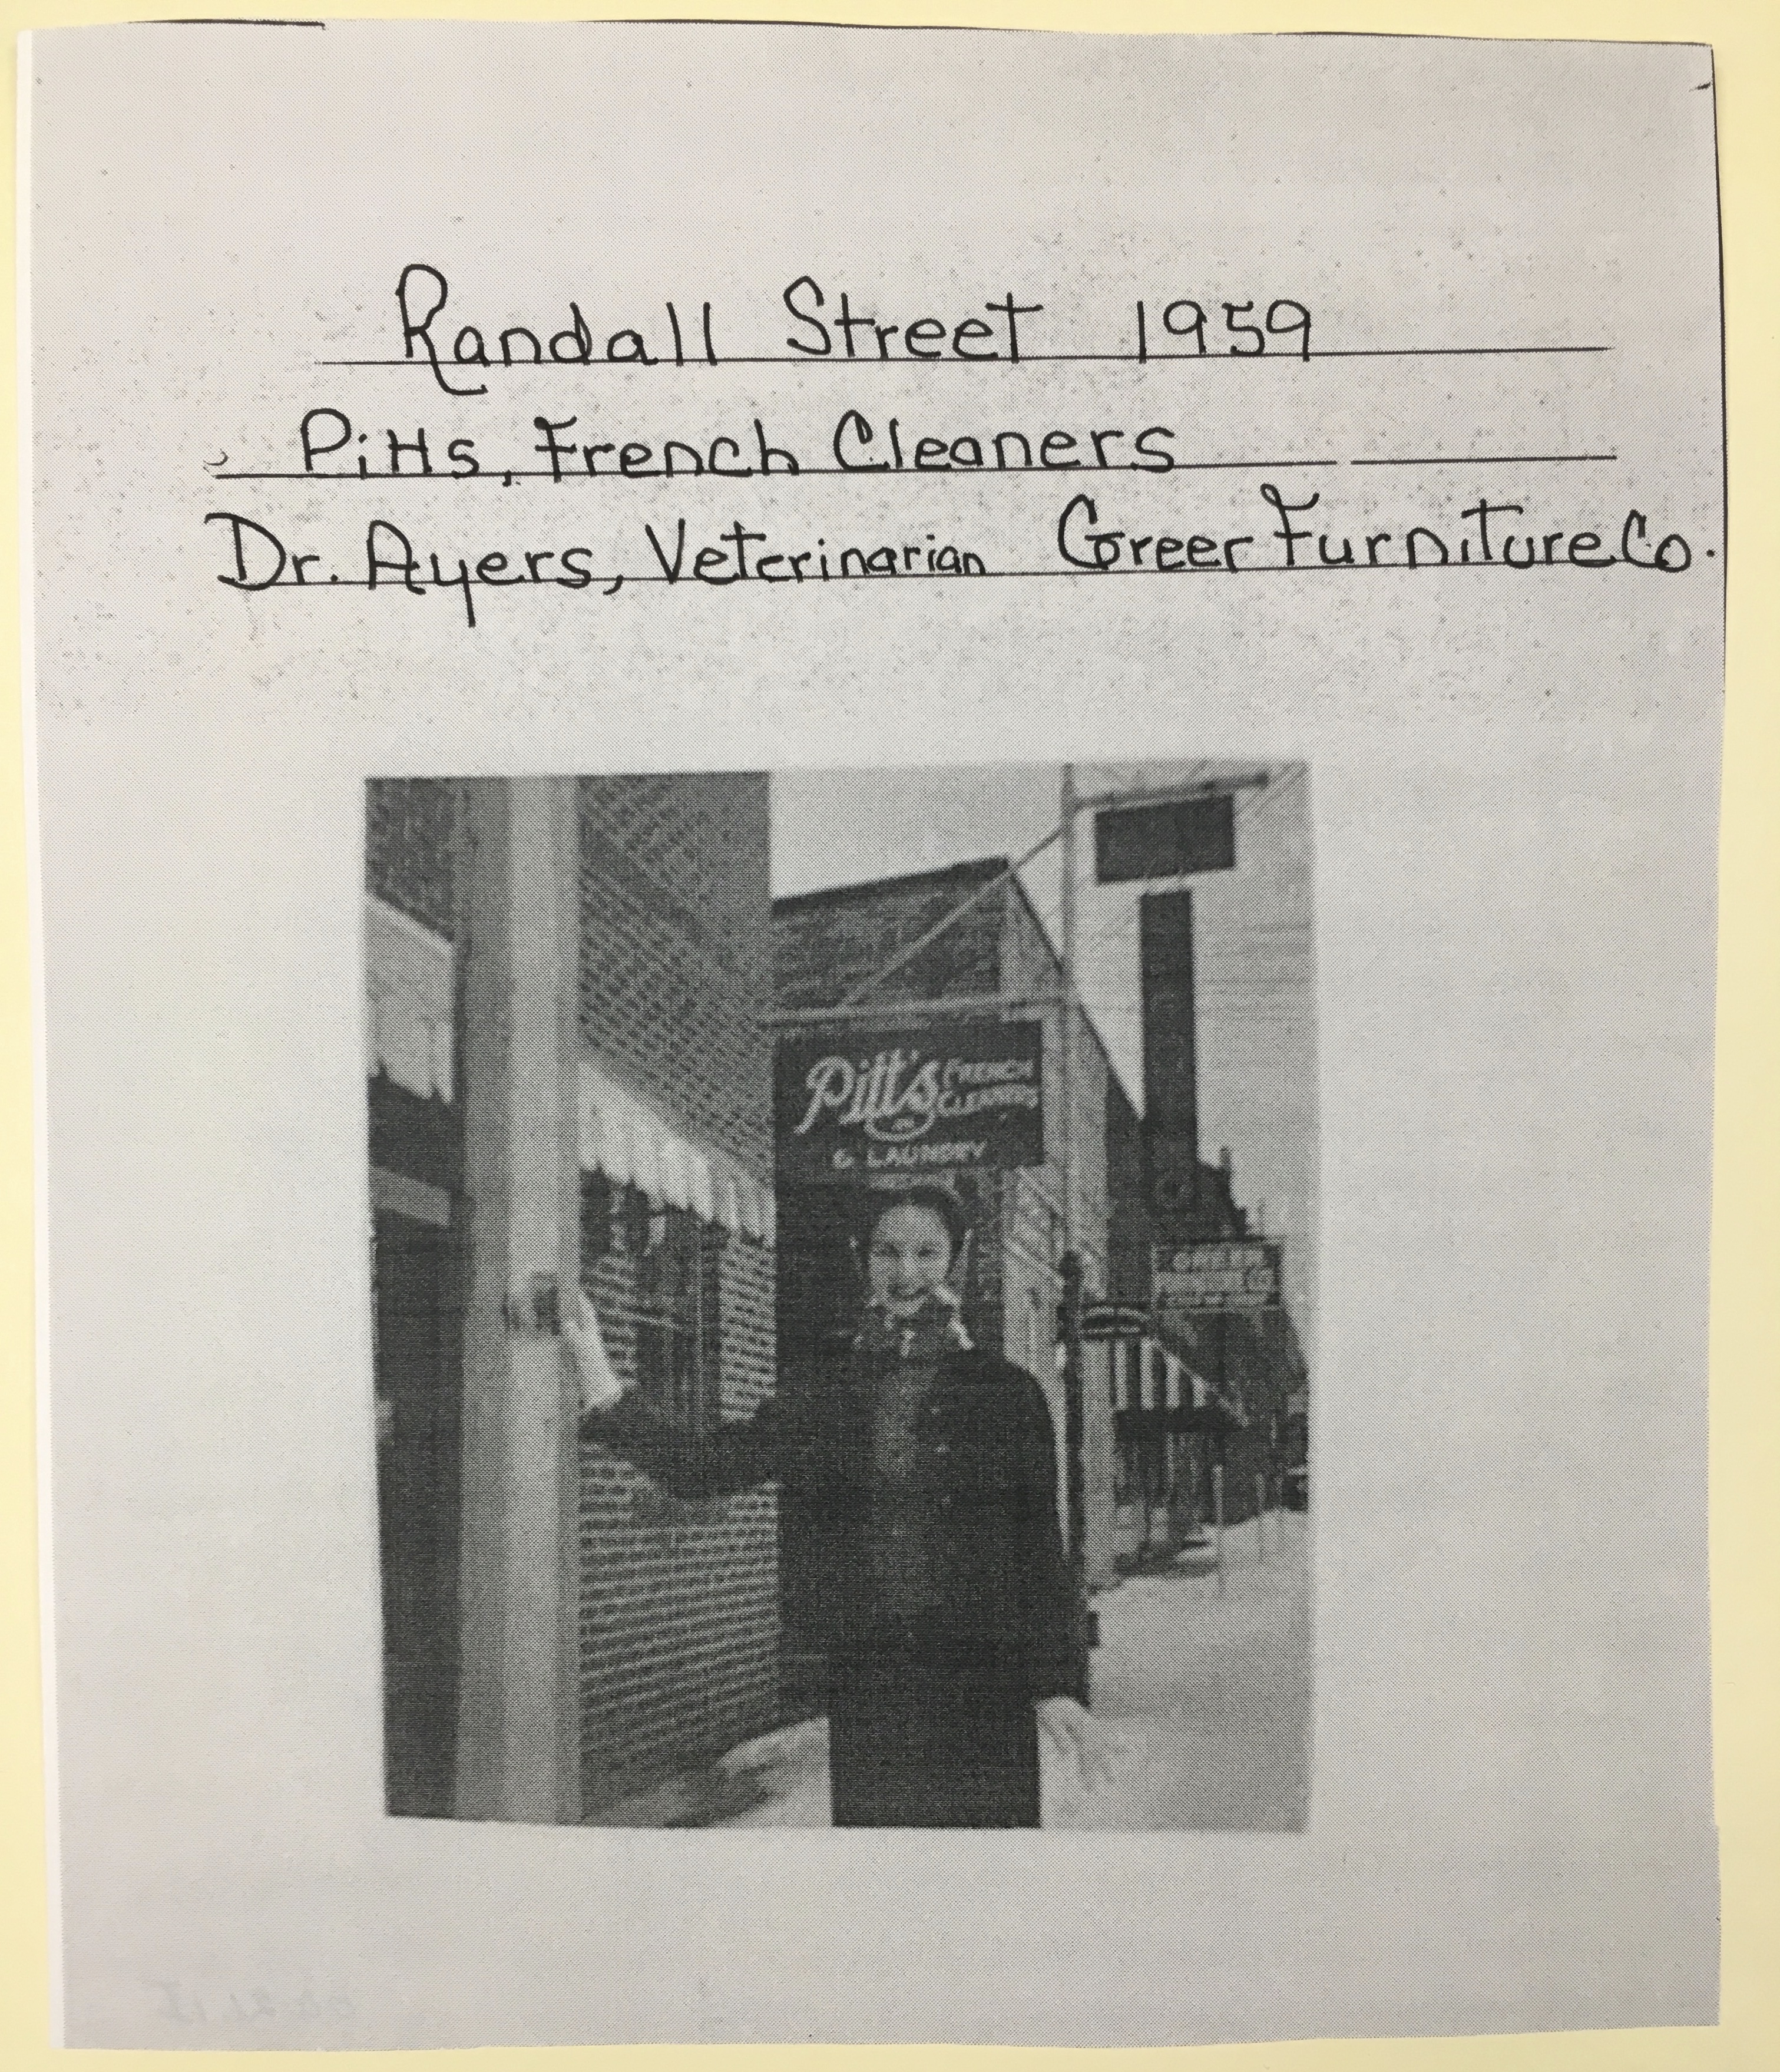 Randall Street 1959
Pitts, French Cleaners
Dr. Ayers, Veterinarian Greer Furniture Co.
Pitt's FRENCH
CLEANERS
& LAUNDRY